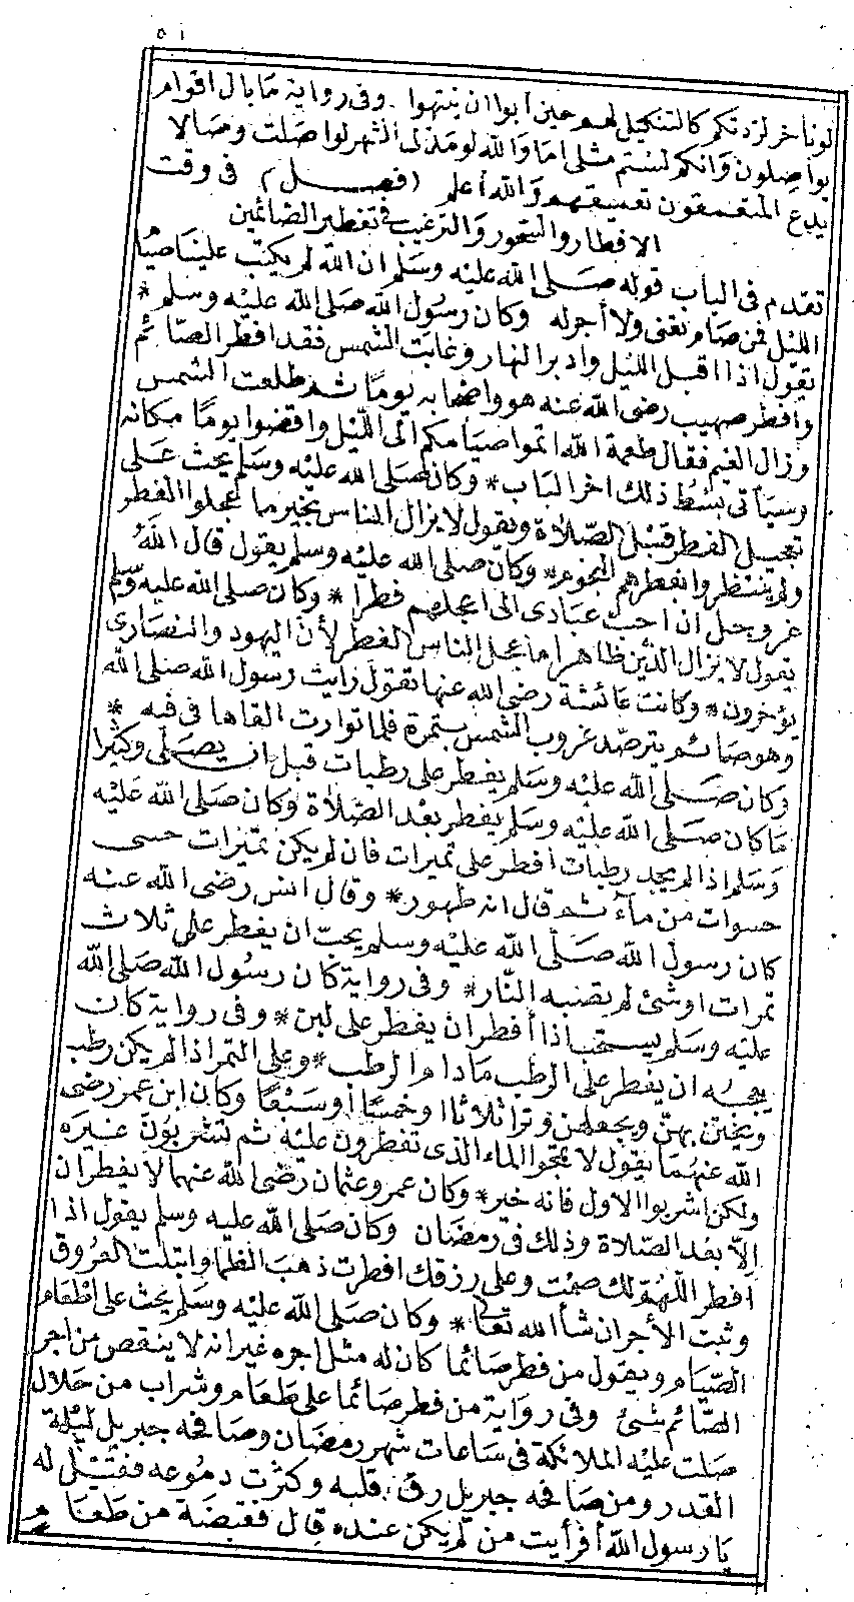 ٥١
لو تأخر لزدتكم كالتنكيل لهم حين أبوا ان ينتهوا . وفى رواية ما بال اقوام
يواصلون وانكم لستم مثلى اما والله لو مد لى الشهر لواصلت وصالا
يدع المتعمقون تعمقهم والله أعلم (فصل) فى وقت
الافطار والسحور والترغيب فى تفطير الصائمين
تقدم فى الباب قوله صلى الله عليه وسلم ان الله لم يكتب علينا صيام
الليل فمن صام تعنى ولا أجر له وكان رسول الله صلى الله عليه وسلم *
يقول اذا اقبل الليل وادبر النهار وغابت الشمس فقد افطر الصائم
وافطر صهيب رضى الله عنه هو واصحابه يوما ثم طلعت الشمس
وزال الغيم فقال طعمة الله اتموا صيامكم الى الليل واقضوا يوما مكانه
وسيأتى بسط ذلك اخر الباب * وكان صلى الله عليه وسلم يحث على
تعجيل الفطر قبل الصلاة ويقول لا يزال الناس بخير ما عجلوا الفطر
ولم ينتظروا بفطرهم النجوم * وكان صلى الله عليه وسلم يقول قال الله
عز وجل ان احب عبادى الى اعجلهم فطرا * وكان صلى الله عليه وسلم
يقول لا يزال الدين ظاهرا ما عجل الناس الفطر لأن اليهود والنصارى
يؤخرون * وكانت عائشة رضى الله عنها تقول رايت رسول الله صلى الله
وهو صائم يترصد غروب الشمس بتمرة فلما توارت القاها فى فيه *
وكان صلى الله عليه وسلم يفطر على رطبات قبل ان يصلى وكثيرا
ما كان صلى الله عليه وسلم يفطر بعد الصلاة وكان صلى الله عليه
وسلم اذا لم يجد رطبات افطر على تميرات فان لم يكن تميرات حسى
حسوات من ماء ثم قال انه طهور * وقال انس رضى الله عنه
كان رسول الله صلى الله عليه وسلم يحب ان يفطر على ثلاث
تمرات او شئ لم يصبه النار * وفى رواية كان رسول الله صلى الله
عليه وسلم يستحب اذا أفطر ان يفطر على لبن * وفى رواية كان
يعجبه ان يفطر على الرطب ما دام الرطب * وعلى التمر اذا لم يكن رطب
ويختم بهن ويجعلهن وترا ثلاثا او خمسا أو سبعا وكان ابن عمر رضى
الله عنهما يقول لا تمجوا الماء الذى تفطرون عليه ثم تشربون غيره
ولكن اشربوا الاول فانه خير * وكان عمر وعثمان رضى الله عنهما لا يفطران
إلا بعد الصلاة وذلك فى رمضان وكان صلى الله عليه وسلم يقول اذا
افطر اللهم لك صمت وعلى رزقك افطرت ذهب الظما وابتلت العروق
وثبت الأجر ان شأ الله تعالى * وكان صلى الله عليه وسلم يحث على اطعام
الصيام ويقول من فطر صائما كان له مثل اجره غير انه لا ينقص من اجر
الصائم شئ وفى رواية من فطر صائما على طعام وشراب من حلال
صلت عليه الملائكة فى ساعات شهر رمضان وصافحه جبريل ليلة
القدر ومن صافحه جبريل رق قلبه وكثرت دموعه فقيل له
يا رسول الله أفرأيت من لم يكن عنده قال فقبضة من طعام